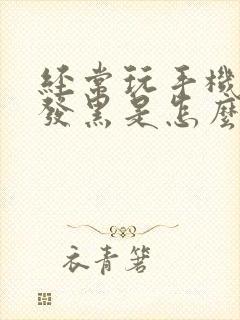 經常玩手機
發黑是怎麼
衣青箬